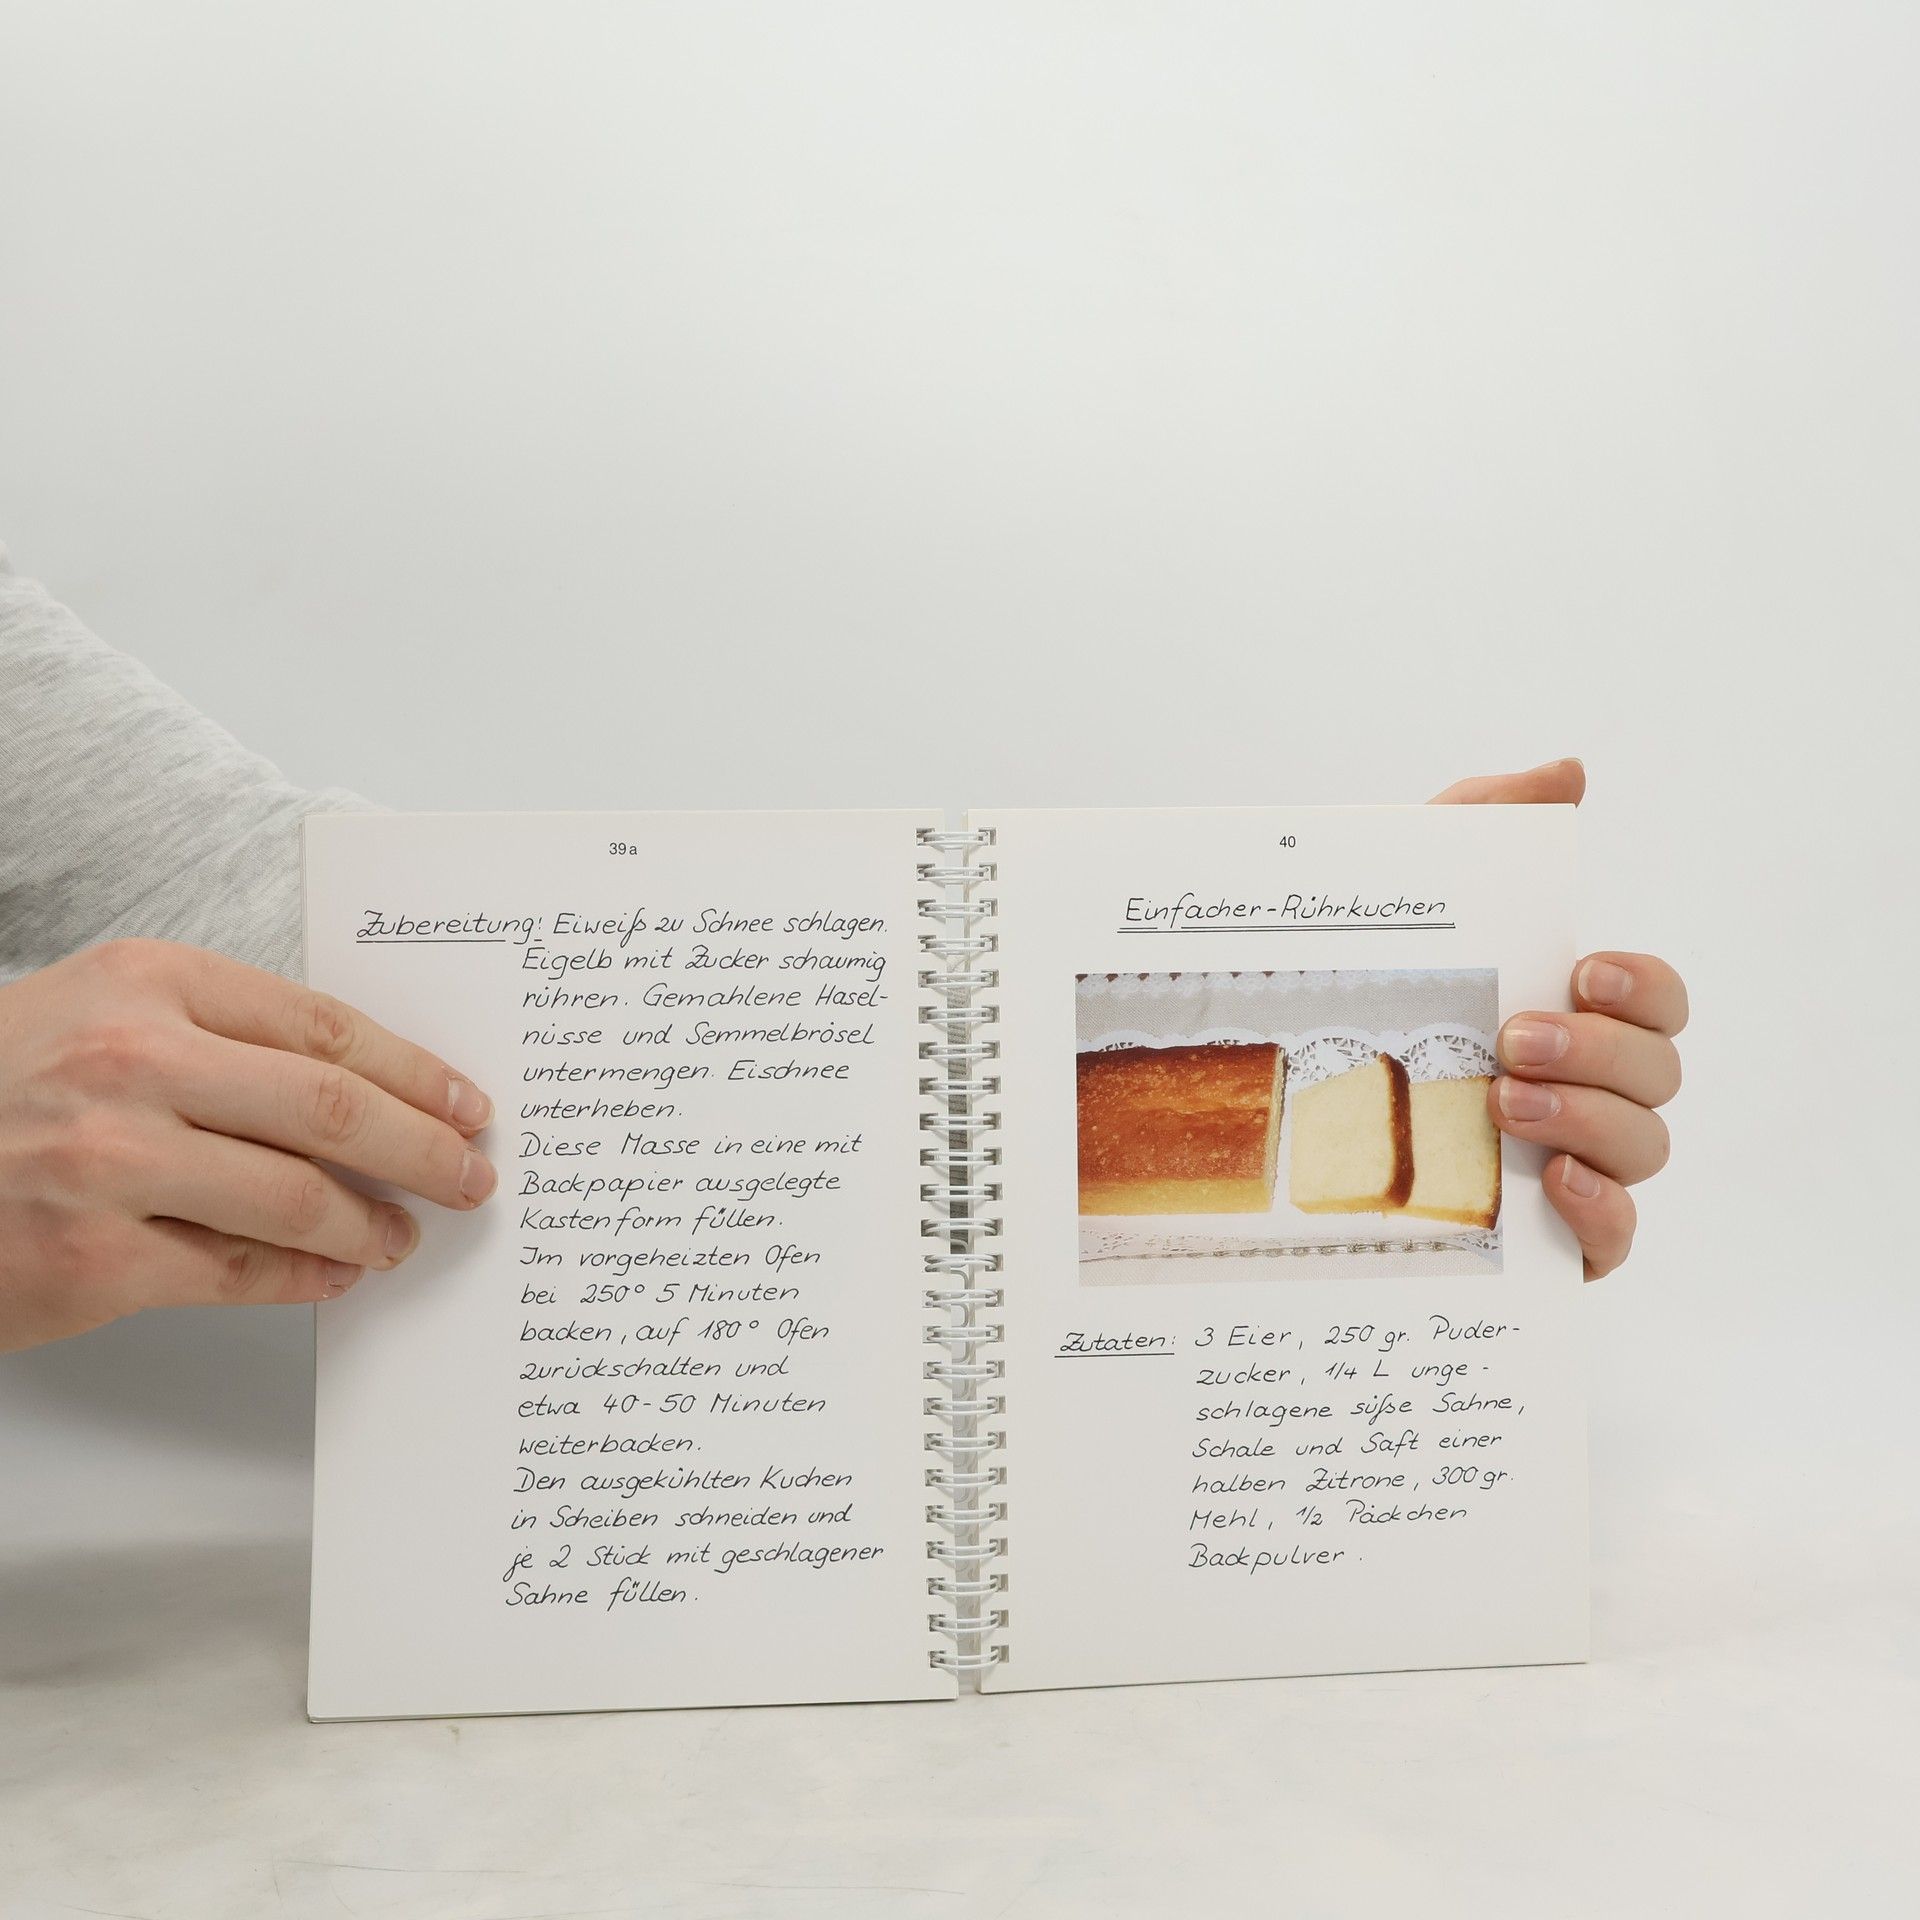 39a
Zubereitung: Eiweiß zu Schnee schlagen.
Eigelb mit Zucker schaumig
rühren. Gemahlene Hasel-
nüsse und Semmelbrösel
untermengen. Eischnee
unterheben.
Diese Masse in eine mit
Backpapier ausgelegte
Kastenform füllen.
Im vorgeheizten Ofen
bei 250° 5 Minuten
backen, auf 180° Ofen
zurückschalten und
etwa 40-50 Minuten
weiterbacken.
Den ausgekühlten Kuchen
in Scheiben schneiden und
je 2 Stück mit geschlagener
Sahne füllen.
40
Einfacher-Rührkuchen
Zutaten: 3 Eier, 250 gr. Puder-
zucker, 1/4 L unge-
schlagene süße Sahne,
Schale und Saft einer
halben Zitrone, 300 gr.
Mehl, 1/2 Päckchen
Backpulver.